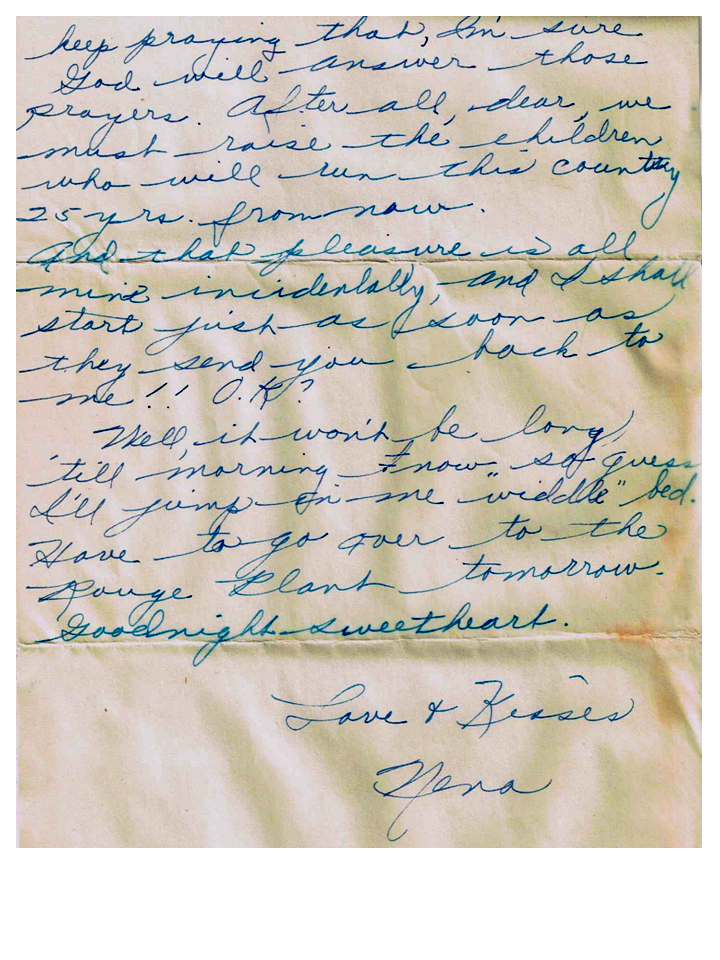 keep praying that, I'm sure
God will answer those
prayers. After all, dear, we
must raise the children
who will run this country
25 yrs. from now.
And that pleasure is all
mine incidentally, and I shall
start just as soon as
they send you back to
me!! O.K?
Well, it won't be long
'till morning now so guess
I'll jump in me "widdle" bed.
Have to go over to the
Rouge Plant tomorrow.
Goodnight sweetheart.
Love & Kisses
Nena